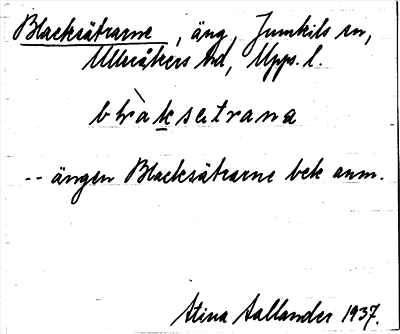 Blacksätrarne, äng, Jumkils sn,
Ulleråkers hd, Upps. l.
blràksetrana
-- ängen Blacksätrarne bek anm.
Stina Sallander 1937.